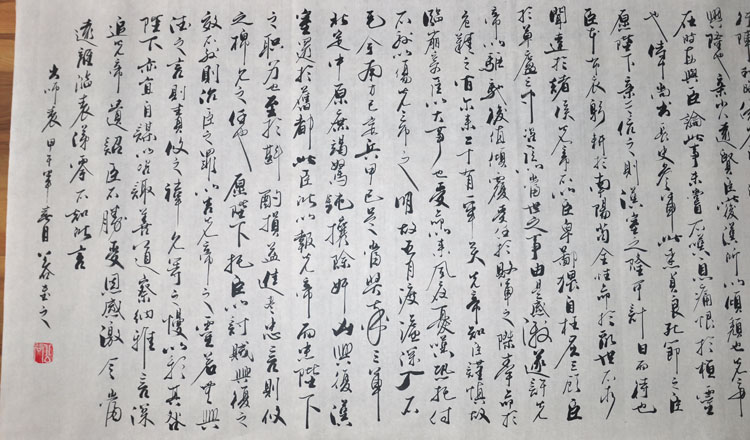 行陣和
興隆也親小人遠賢臣此後漢所以傾頹也先帝
在時每與臣論此事未嘗不嘆息痛恨於桓靈
也侍中尚書長史參軍此悉貞良死節之臣
願陛下親之信之則漢室之隆可計日而待也
臣本布衣躬耕於南陽苟全性命於亂世不求
聞達於諸侯先帝不以臣卑鄙猥自枉屈三顧臣
於草廬之中諮臣以當世之事由是感激遂許先
帝以驅馳後值傾覆受任於敗軍之際奉命於
危難之間爾來二十有一年矣先帝知臣謹慎故
臨崩寄臣以大事也受命以來夙夜憂嘆恐托付
不效以傷先帝之明故五月渡瀘深入不
毛今南方已定兵甲已足當獎率三軍
北定中原庶竭駑鈍攘除奸凶興復漢
室還於舊都此臣所以報先帝而忠陛下
之職分也至於斟酌損益進盡忠言則攸
之禕允之任也願陛下托臣以討賊興復之
效不效則治臣之罪以告先帝之靈若無興
德之言則責攸之禕允等之慢以彰其咎
陛下亦宜自謀以諮諏善道察納雅言深
追先帝遺詔臣不勝受恩感激今當
遠離臨表涕零不知所言
出師表 甲午年 春月